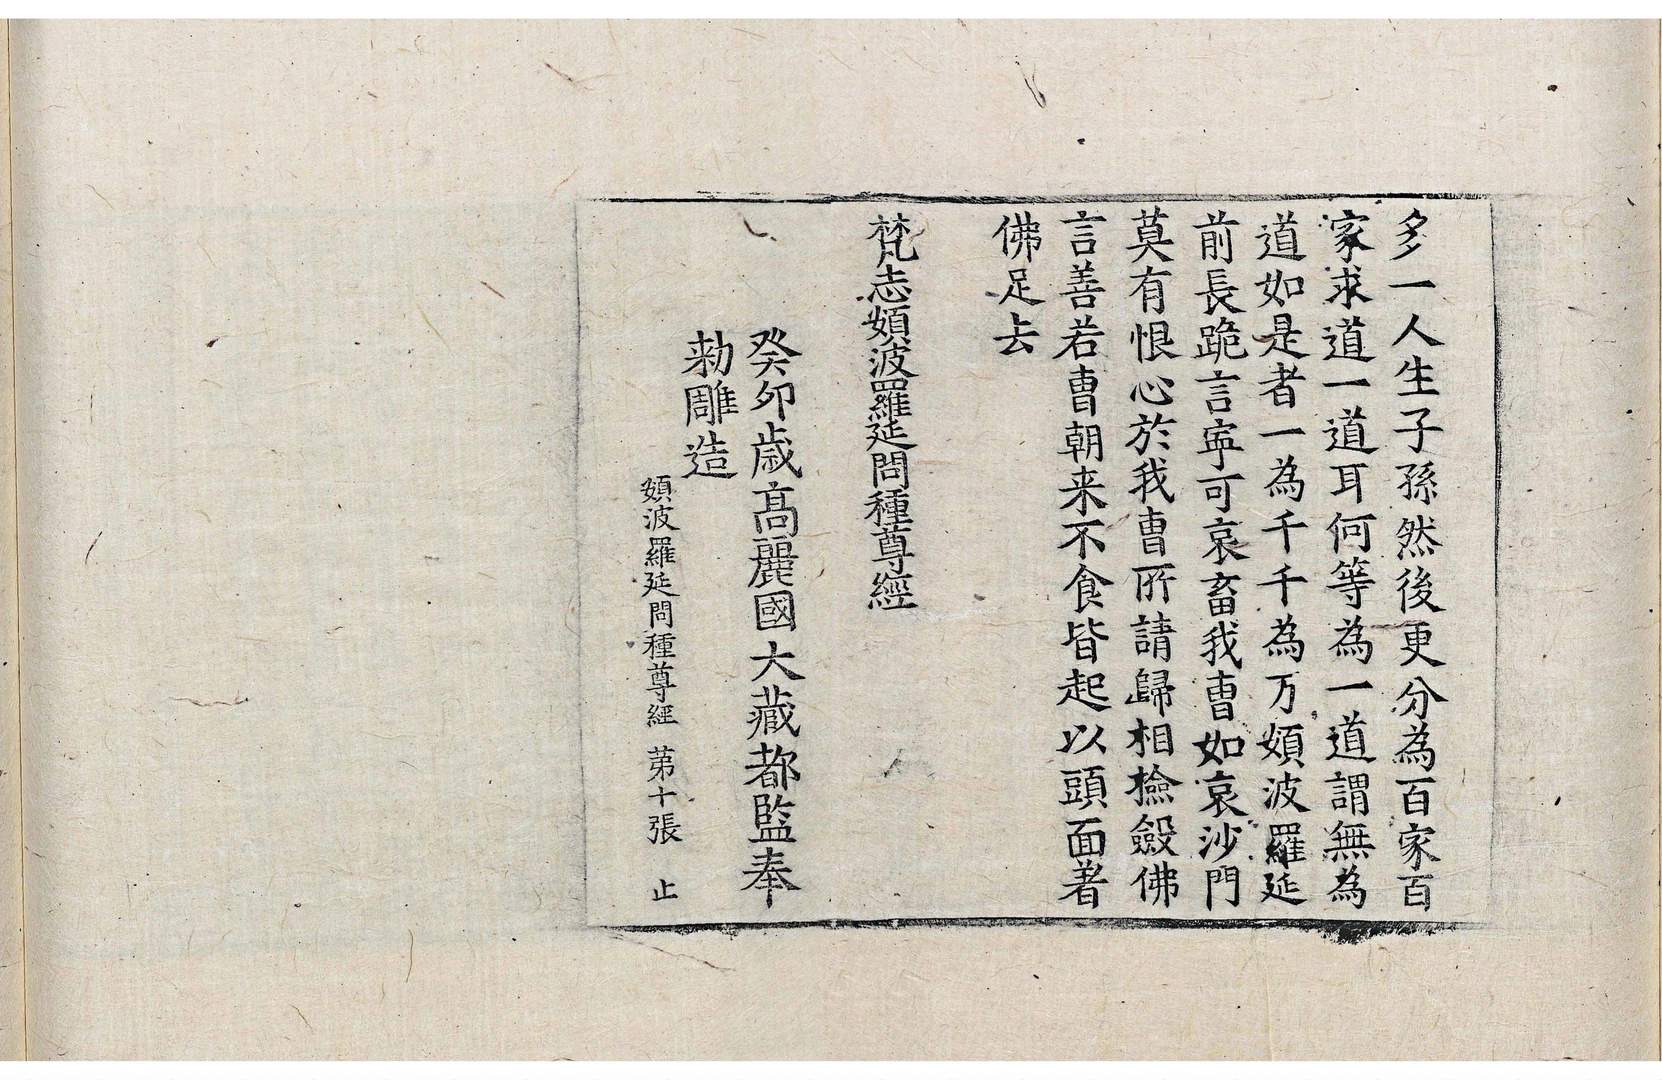 多一人生子孫然後更分為百家百
家求道一道耳何等為一道謂無為
道如是者一為千千為万頞波羅延
前長跪言寜可哀畜我曺如哀沙門
莫有恨心於我曺所請歸相撿斂佛
言善若曺朝来不食皆起以頭面著
佛足去
梵志頞波羅延問種尊經
癸卯歲高麗國大藏都監奉
勅雕造
頞波羅延問種尊經 第十張 止